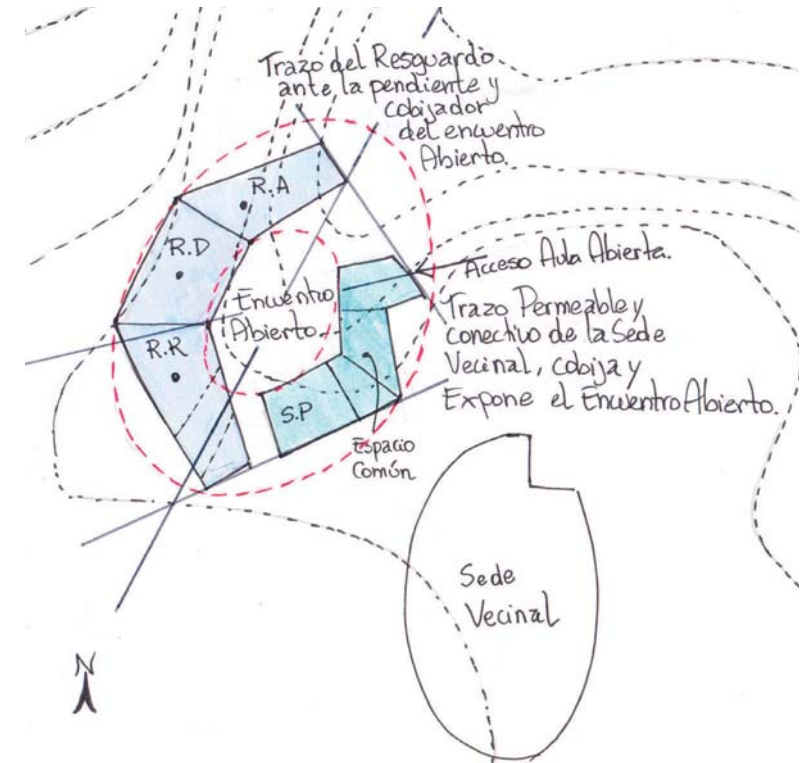 Trazo del Resguardo
ante la pendiente y
cobijador
del encuentro
Abierto.
R.A
R.D
Encuentro
Abierto
R.R
Acceso Aula Abierta.
Trazo Permeable y
conectivo de la Sede
Vecinal, cobija y
Expone el Encuentro Abierto.
S.P
Espacio
Común
Sede
Vecinal
N